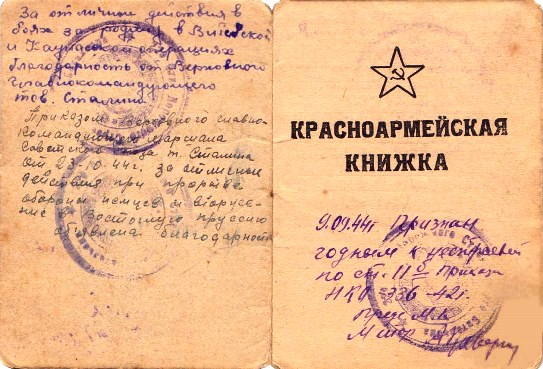 За отличные действия в
боях за родину в Витебской
и Каунасской операциях
благодарность от Верховного
Главнокомандующего
тов. Сталина
Приказом Верховного главно-
командующего маршала
Советского союза т. Сталина
от 23.10.44г. за отличные
действия при прорыве
обороны немцев и вторже-
ние Восточную Пруссию
объявлена благодарность
КРАСНОАРМЕЙСКАЯ
КНИЖКА
9.09.44г Признан
годным к нестроевой
по ст. 11 Приказ
НКО 336-42г.